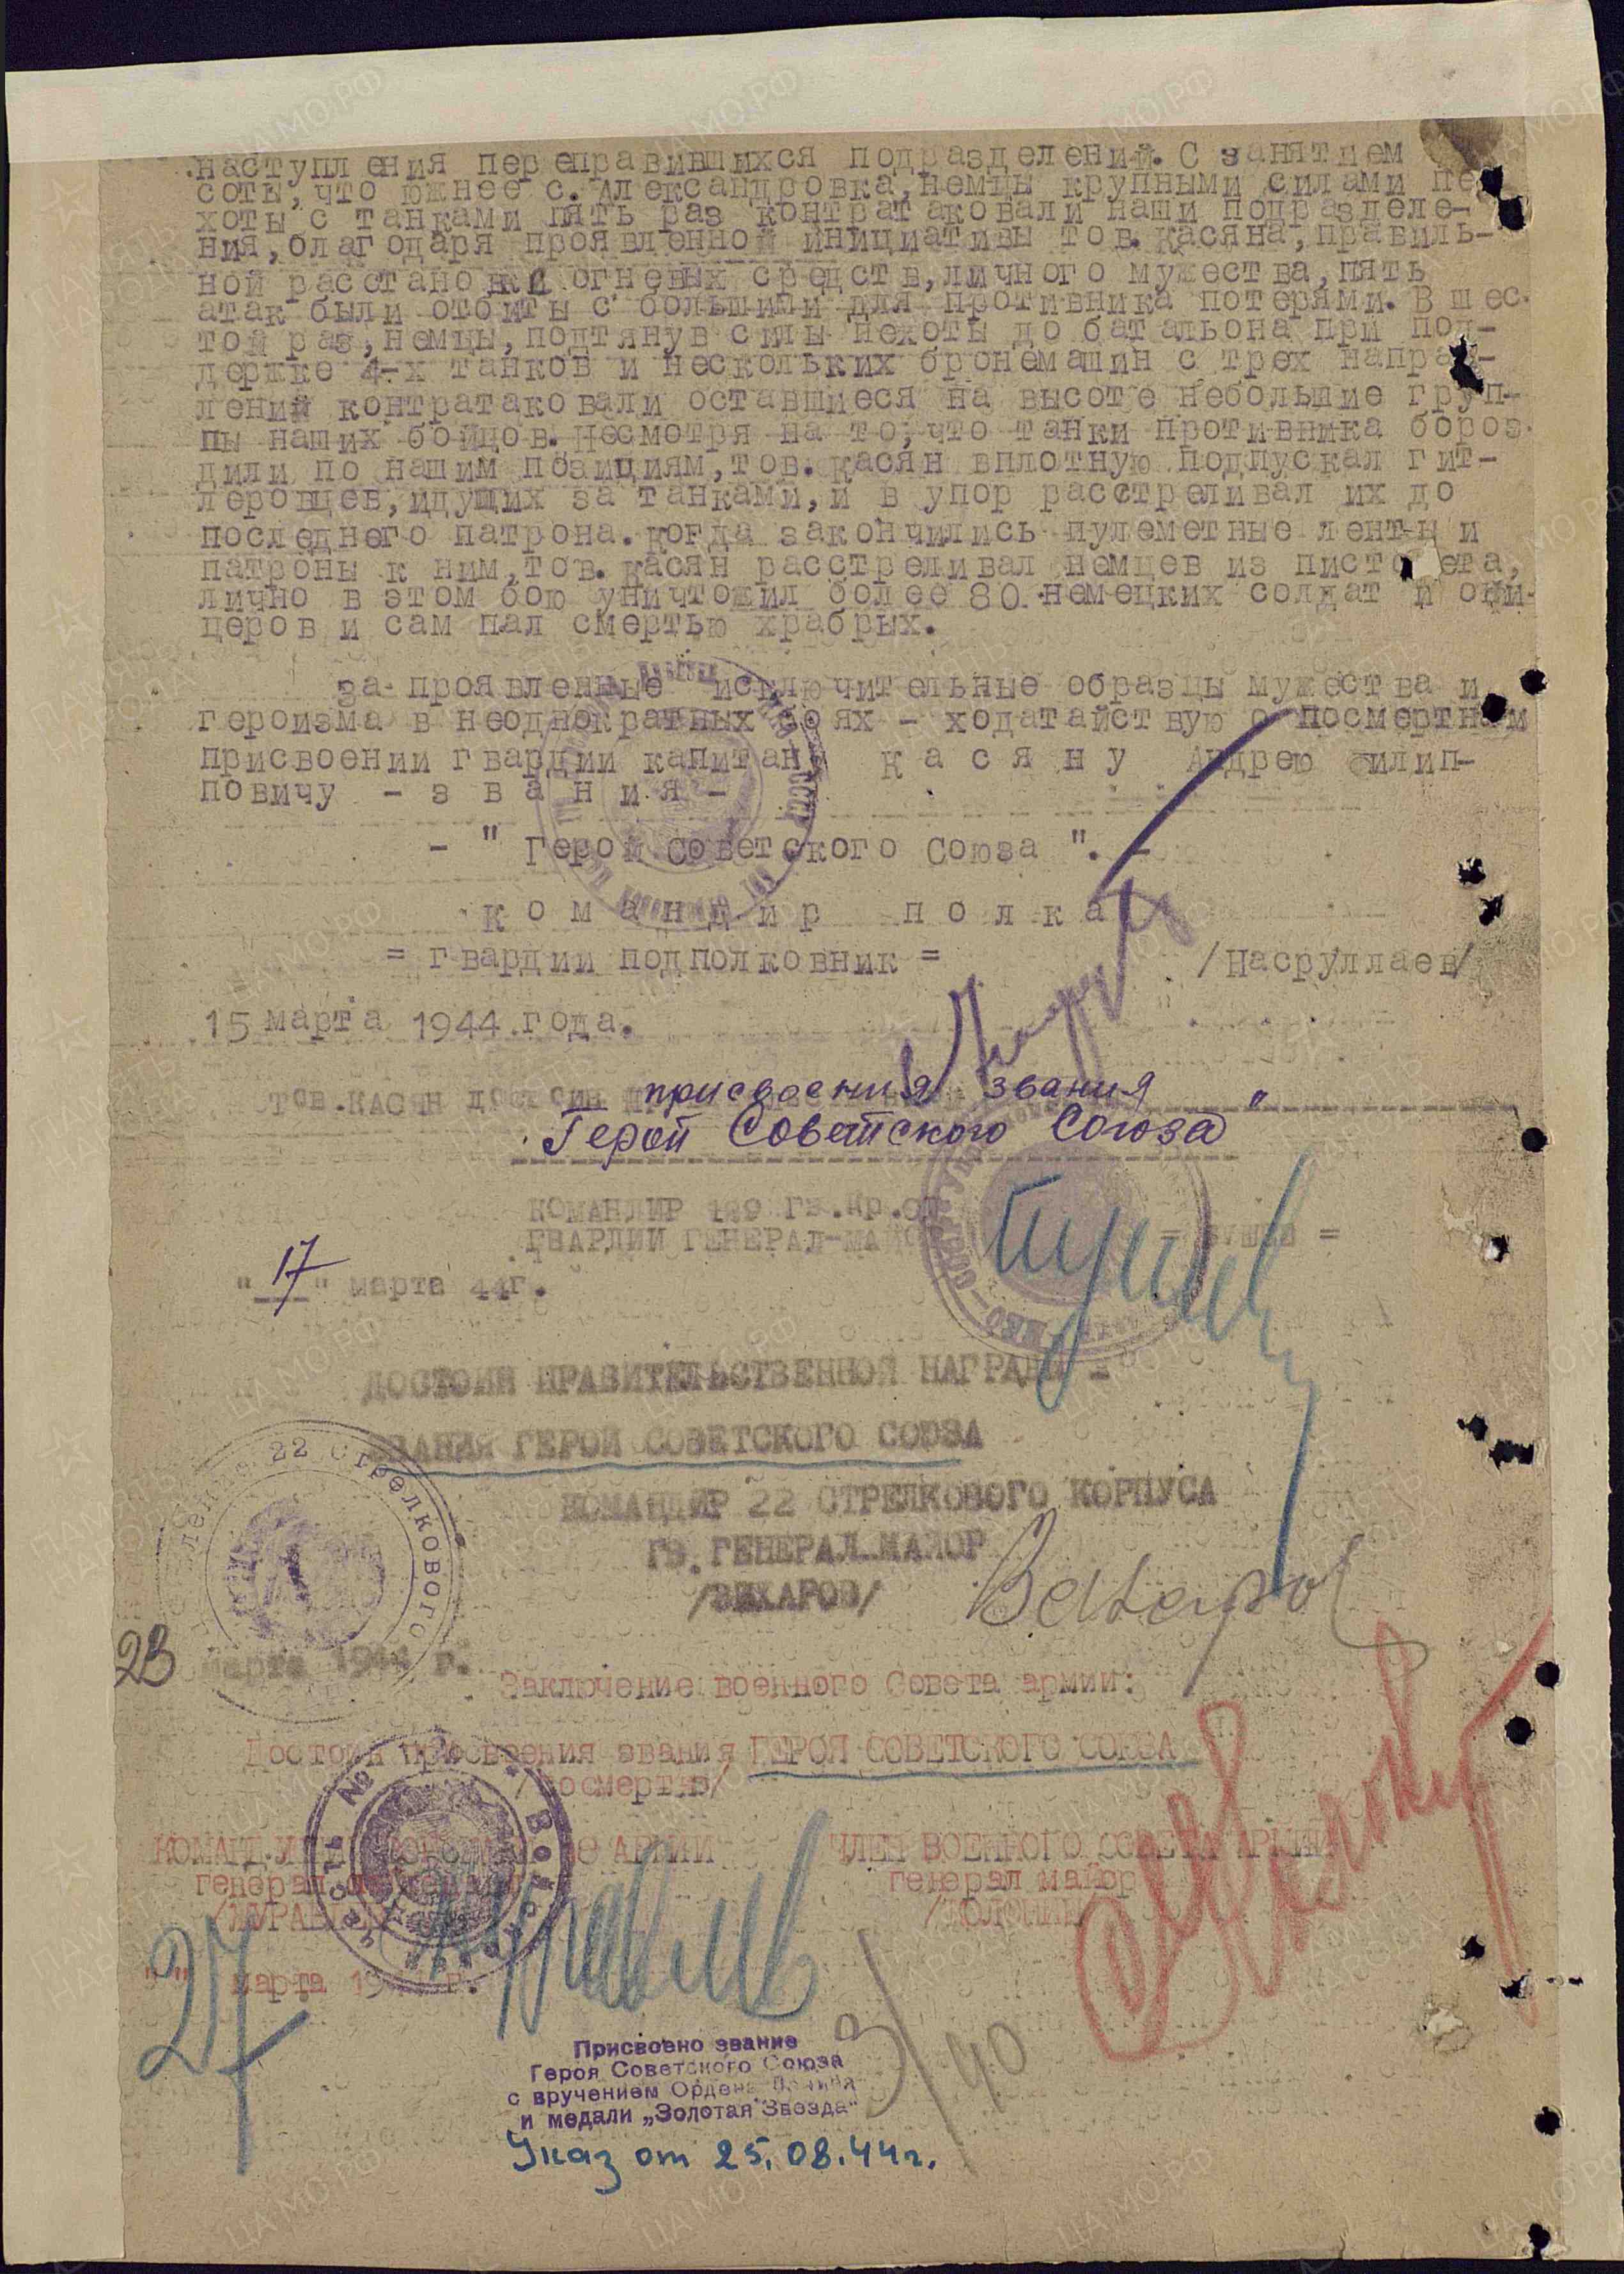 наступления переправившихся подразделений. С занятием
соты, что южнее с. Александровка, немцы крупными силами пе
хоты с танками пять раз контратаковали наши подразделе-
ния, благодаря проявленной инициативы тов. Касяна, правиль-
ной расстановки огневых средств, личного мужества, пять
атак были отбиты с большими для противника потерями. В шес-
той раз, немцы, подтянув силы пехоты до батальона при под-
держке 4-х танков и нескольких бронемашин с трех направ-
лений контратаковали оставшиеся на высоте небольшие груп-
пы наших бойцов. Несмотря на то, что танки противника бороз-
дили по нашим позициям, тов. Касян вплотную подпускал гит-
леровцев, идущих за танками, и в упор расстреливал их до
последнего патрона. Когда закончились пулеметные ленты и
патроны к ним, тов. Касян расстреливал немцев из пистолета,
лично в этом бою уничтожил более 80 немецких солдат и офи-
церов и сам пал смертью храбрых.
За проявленные исключительные образцы мужества и
героизма в неоднократных боях - ходатайствую о посмертном
присвоении гвардии капитану К а с я н у Андрею Филип-
повичу - з в а н и я -
- " Герой Советского Союза ". -
К о м а н д и р п о л к а
= гвардии подполковник =
/Насруллаев/
15 марта 1944 года.
Тов. Касян достоин присвоения звания
"Герой Советского Союза"
КОМАНДИР гв.кр.сд
ГВАРДИИ ГЕНЕРАЛ-МАЙОР
"17" марта 44г.
ДОСТОИН ПРАВИТЕЛЬСТВЕННОЙ НАГРАДЫ -
ЗВАНИЯ ГЕРОЙ СОВЕТСКОГО СОЮЗА
КОМАНДИР 22 СТРЕЛКОВОГО КОРПУСА
ГВ. ГЕНЕРАЛ-МАЙОР
/ЗАХАРОВ/
22 Стрелкового
23 марта 1944 г.
Заключение военного Совета армии:
Достоин присвоения звания ГЕРОЯ СОВЕТСКОГО СОЮЗА
/посмертно/
АРМИИ
ЧЛЕН ВОЕННОГО СОВЕТА АРМИИ
генерал
генерал майор
27 марта
Присвоено звание
Героя Советского Союза
с вручением Ордена Ленина
и медали „Золотая Звезда"
Указ от 25.08.44г.
3/40